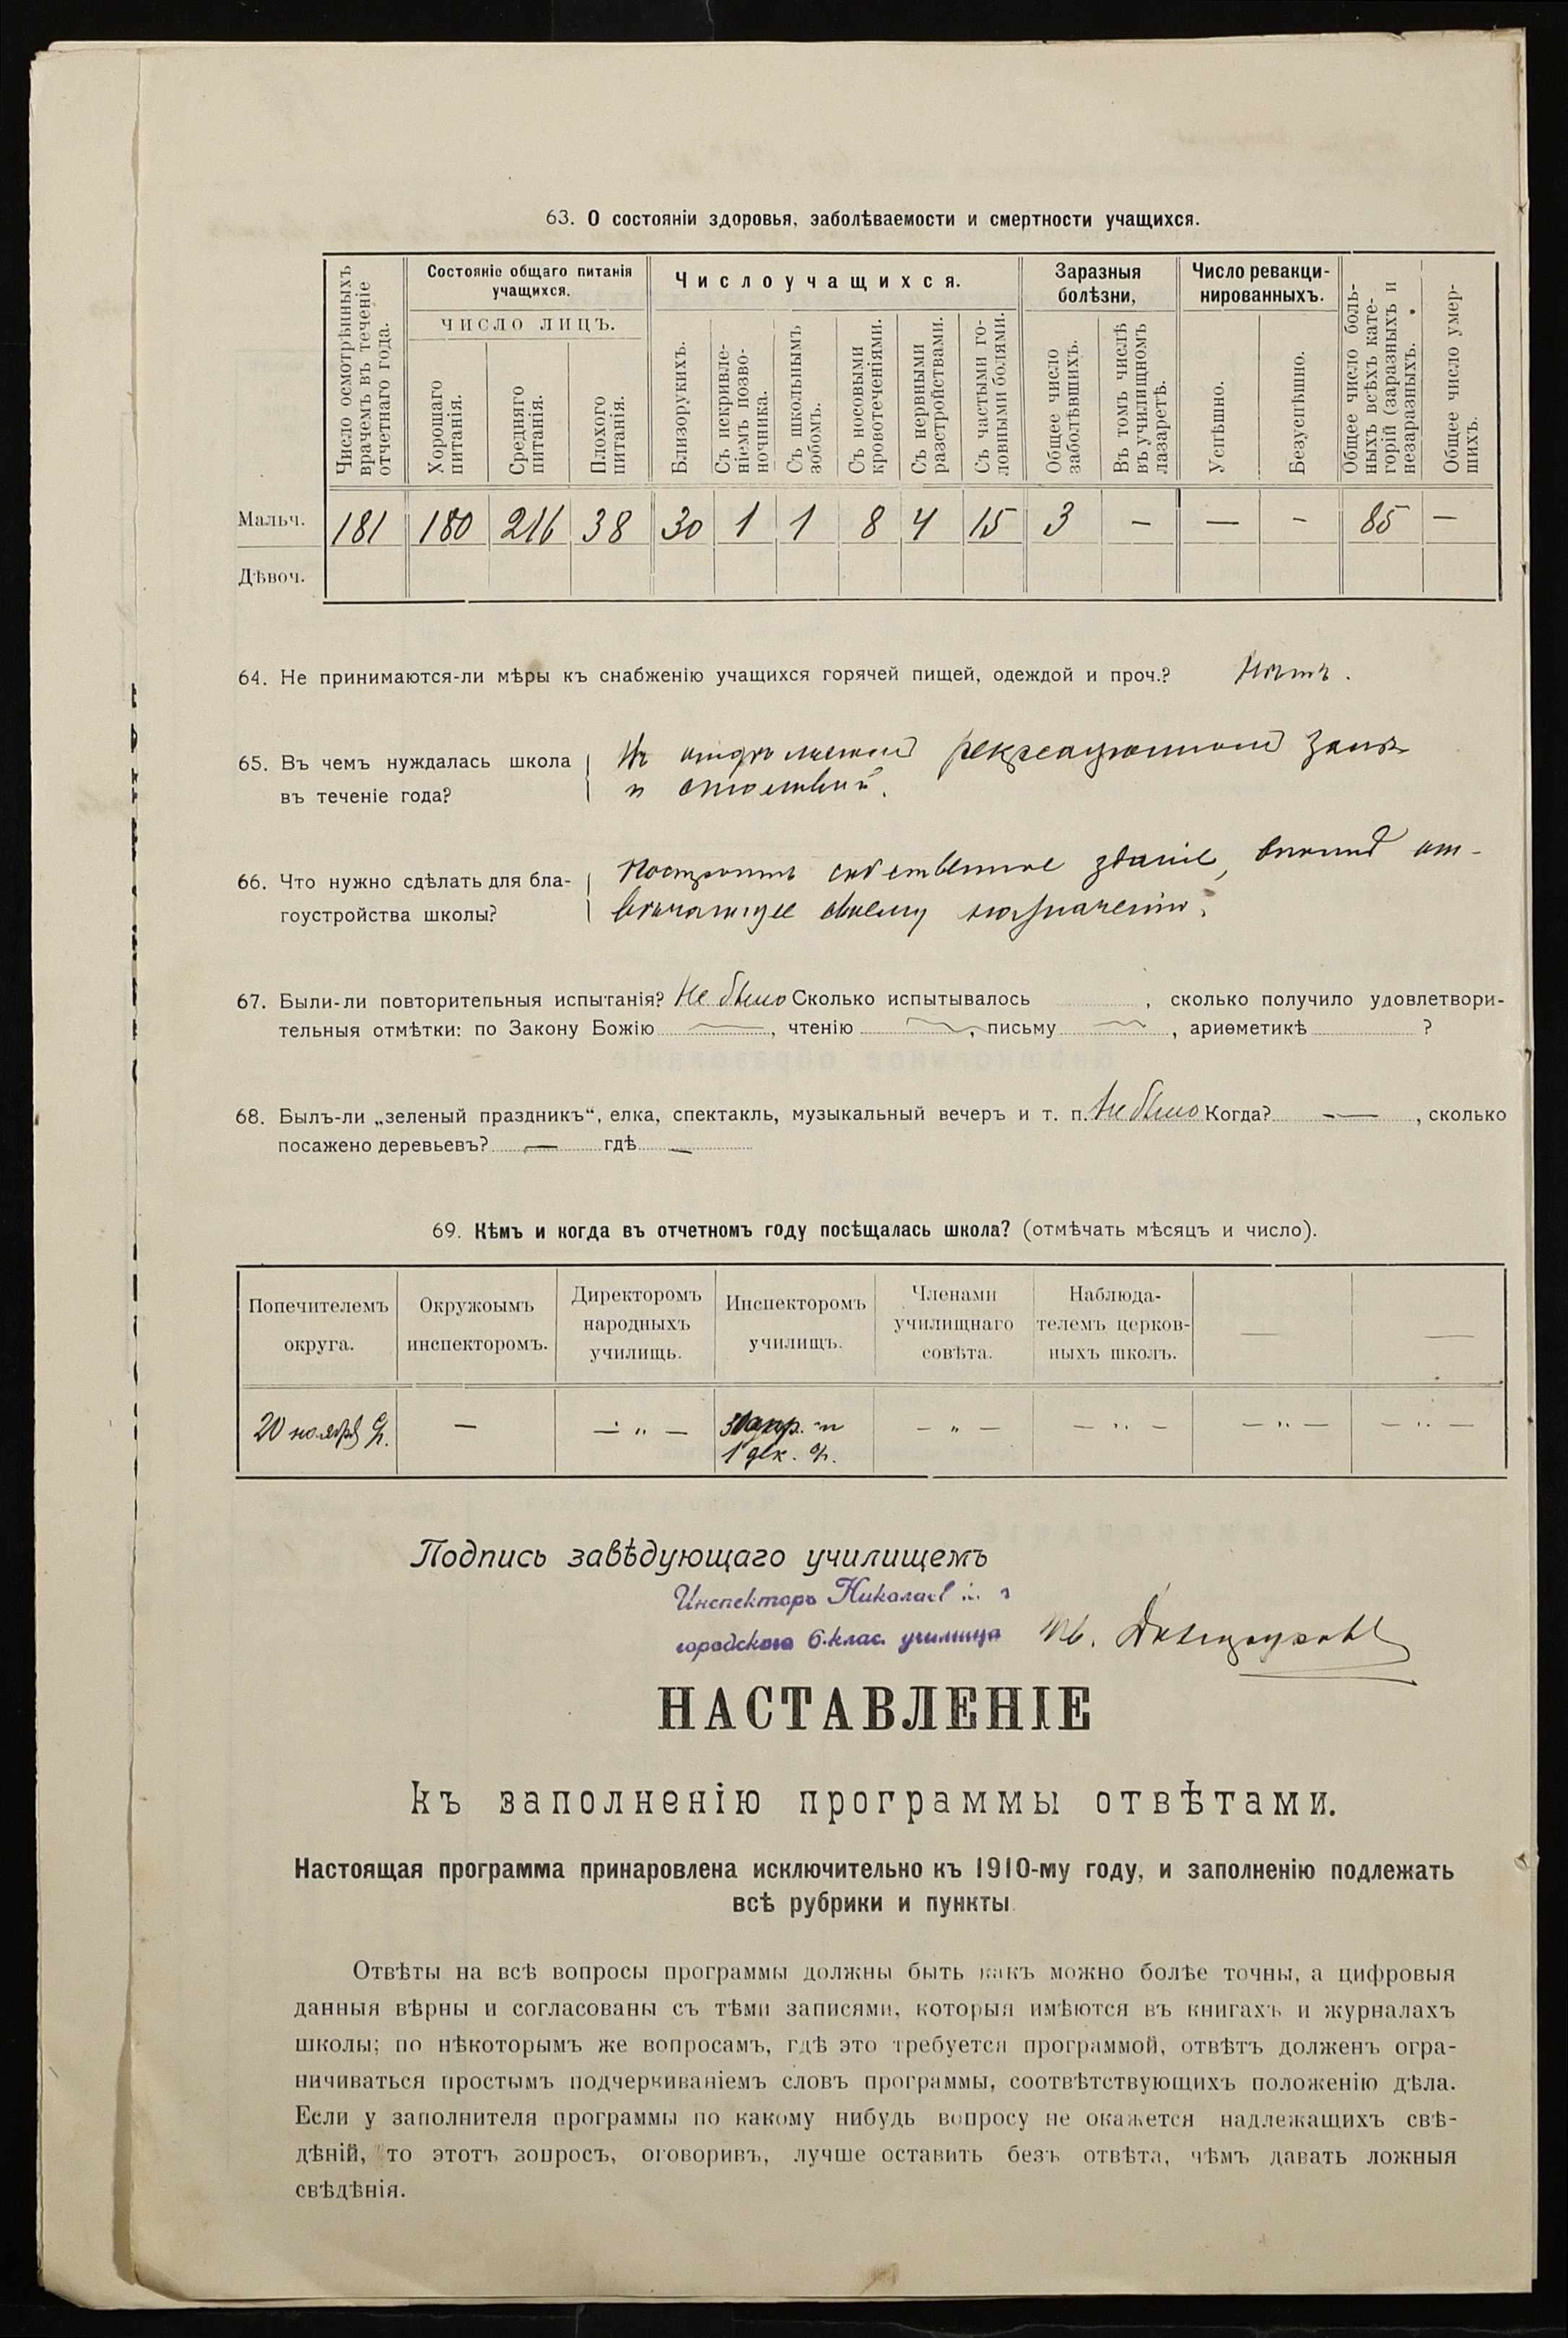 63. О состоянiи здоровья, заболѣваемости и смертности учащихся.
Число осмотрѣнныхъ врачемъ въ теченiе отчетнаго года.
Состоянiе общаго питанiя
учащихся.
ЧИСЛО ЛИЦЪ.
Хорошаго питанiя.
Средняго питанiя.
Плохого питанiя.
Число учащихся.
Близорукихъ.
Съ искривле-
нiемъ позво-
ночника.
Съ школьнымъ зобомъ.
Съ носовыми кровотеченiями.
Съ нервными разстройствами.
Съ частыми го-
ловными болями.
Заразныя
болѣзни,
Общее число заболѣвшихъ.
Въ томъ числѣ въ училищномъ лазаретѣ.
Число ревакци-
нированныхъ.
Успѣшно.
Безуспѣшно.
Общее число боль-
ныхъ всѣхъ кате-
горiй (заразныхъ и
незаразныхъ.
Общее число умер-
шихъ.
Мальч. 181 180 216 38 30 1 1 8 4 15 3 — — — 85 —
Дѣвоч.
64. Не принимаются-ли мѣры къ снабженiю учащихся горячей пищей, одеждой и проч.? Нѣтъ.
65. Въ чемъ нуждалась школа
въ теченiе года?
Въ рекреационной залѣ
и
66. Что нужно сдѣлать для бла-
гоустройства школы?
Построить собственное зданiе, вполнѣ от-
вѣчающее своему назначенiю.
67. Были-ли повторительныя испытанiя? Не было Сколько испытывалось , сколько получило удовлетвори-
тельныя отмѣтки: по Закону Божiю —, чтенiю —, письму —, ариѳметикѣ ?
68. Былъ-ли „зеленый праздникъ“, елка, спектакль, музыкальный вечеръ и т. п. Не было Когда? — , сколько
посажено деревьевъ? — гдѣ —
69. Кѣмъ и когда въ отчетномъ году посѣщалась школа? (отмѣчать мѣсяцъ и число).
Попечителемъ
округа.
Окружоымъ
инспекторомъ.
Директоромъ
народныхъ
училищь.
Инспекторомъ
училищъ.
Членами
училищнаго
совѣта.
Наблюда-
телемъ церков-
ныхъ школъ.
— —
20 ноября — — „ — апр. и — „ — — „ — — „ — — „ —
1 дек.
Подпись завѣдующаго училищемъ
Инспекторъ Николаев
городского 6-клас. училища
НАСТАВЛЕНIЕ
къ заполненiю программы отвѣтами.
Настоящая программа принаровлена исключительно къ 1910-му году, и заполненiю подлежать
всѣ рубрики и пункты
Отвѣты на всѣ вопросы программы должны быть какъ можно болѣе точны, а цифровыя
данныя вѣрны и согласованы съ тѣми записями, которыя имѣются въ книгахъ и журналахъ
школы; по нѣкоторымъ же вопросамъ, гдѣ это требуется программой, отвѣтъ долженъ огра-
ничиваться простымъ подчеркиванiемъ словъ программы, соотвѣтствующихъ положенiю дѣла.
Если у заполнителя программы по какому нибудь вопросу не окажется надлежащихъ свѣ-
дѣнiй, то этотъ вопросъ, оговоривъ, лучше оставить безъ отвѣта, чѣмъ давать ложныя
свѣдѣнiя.